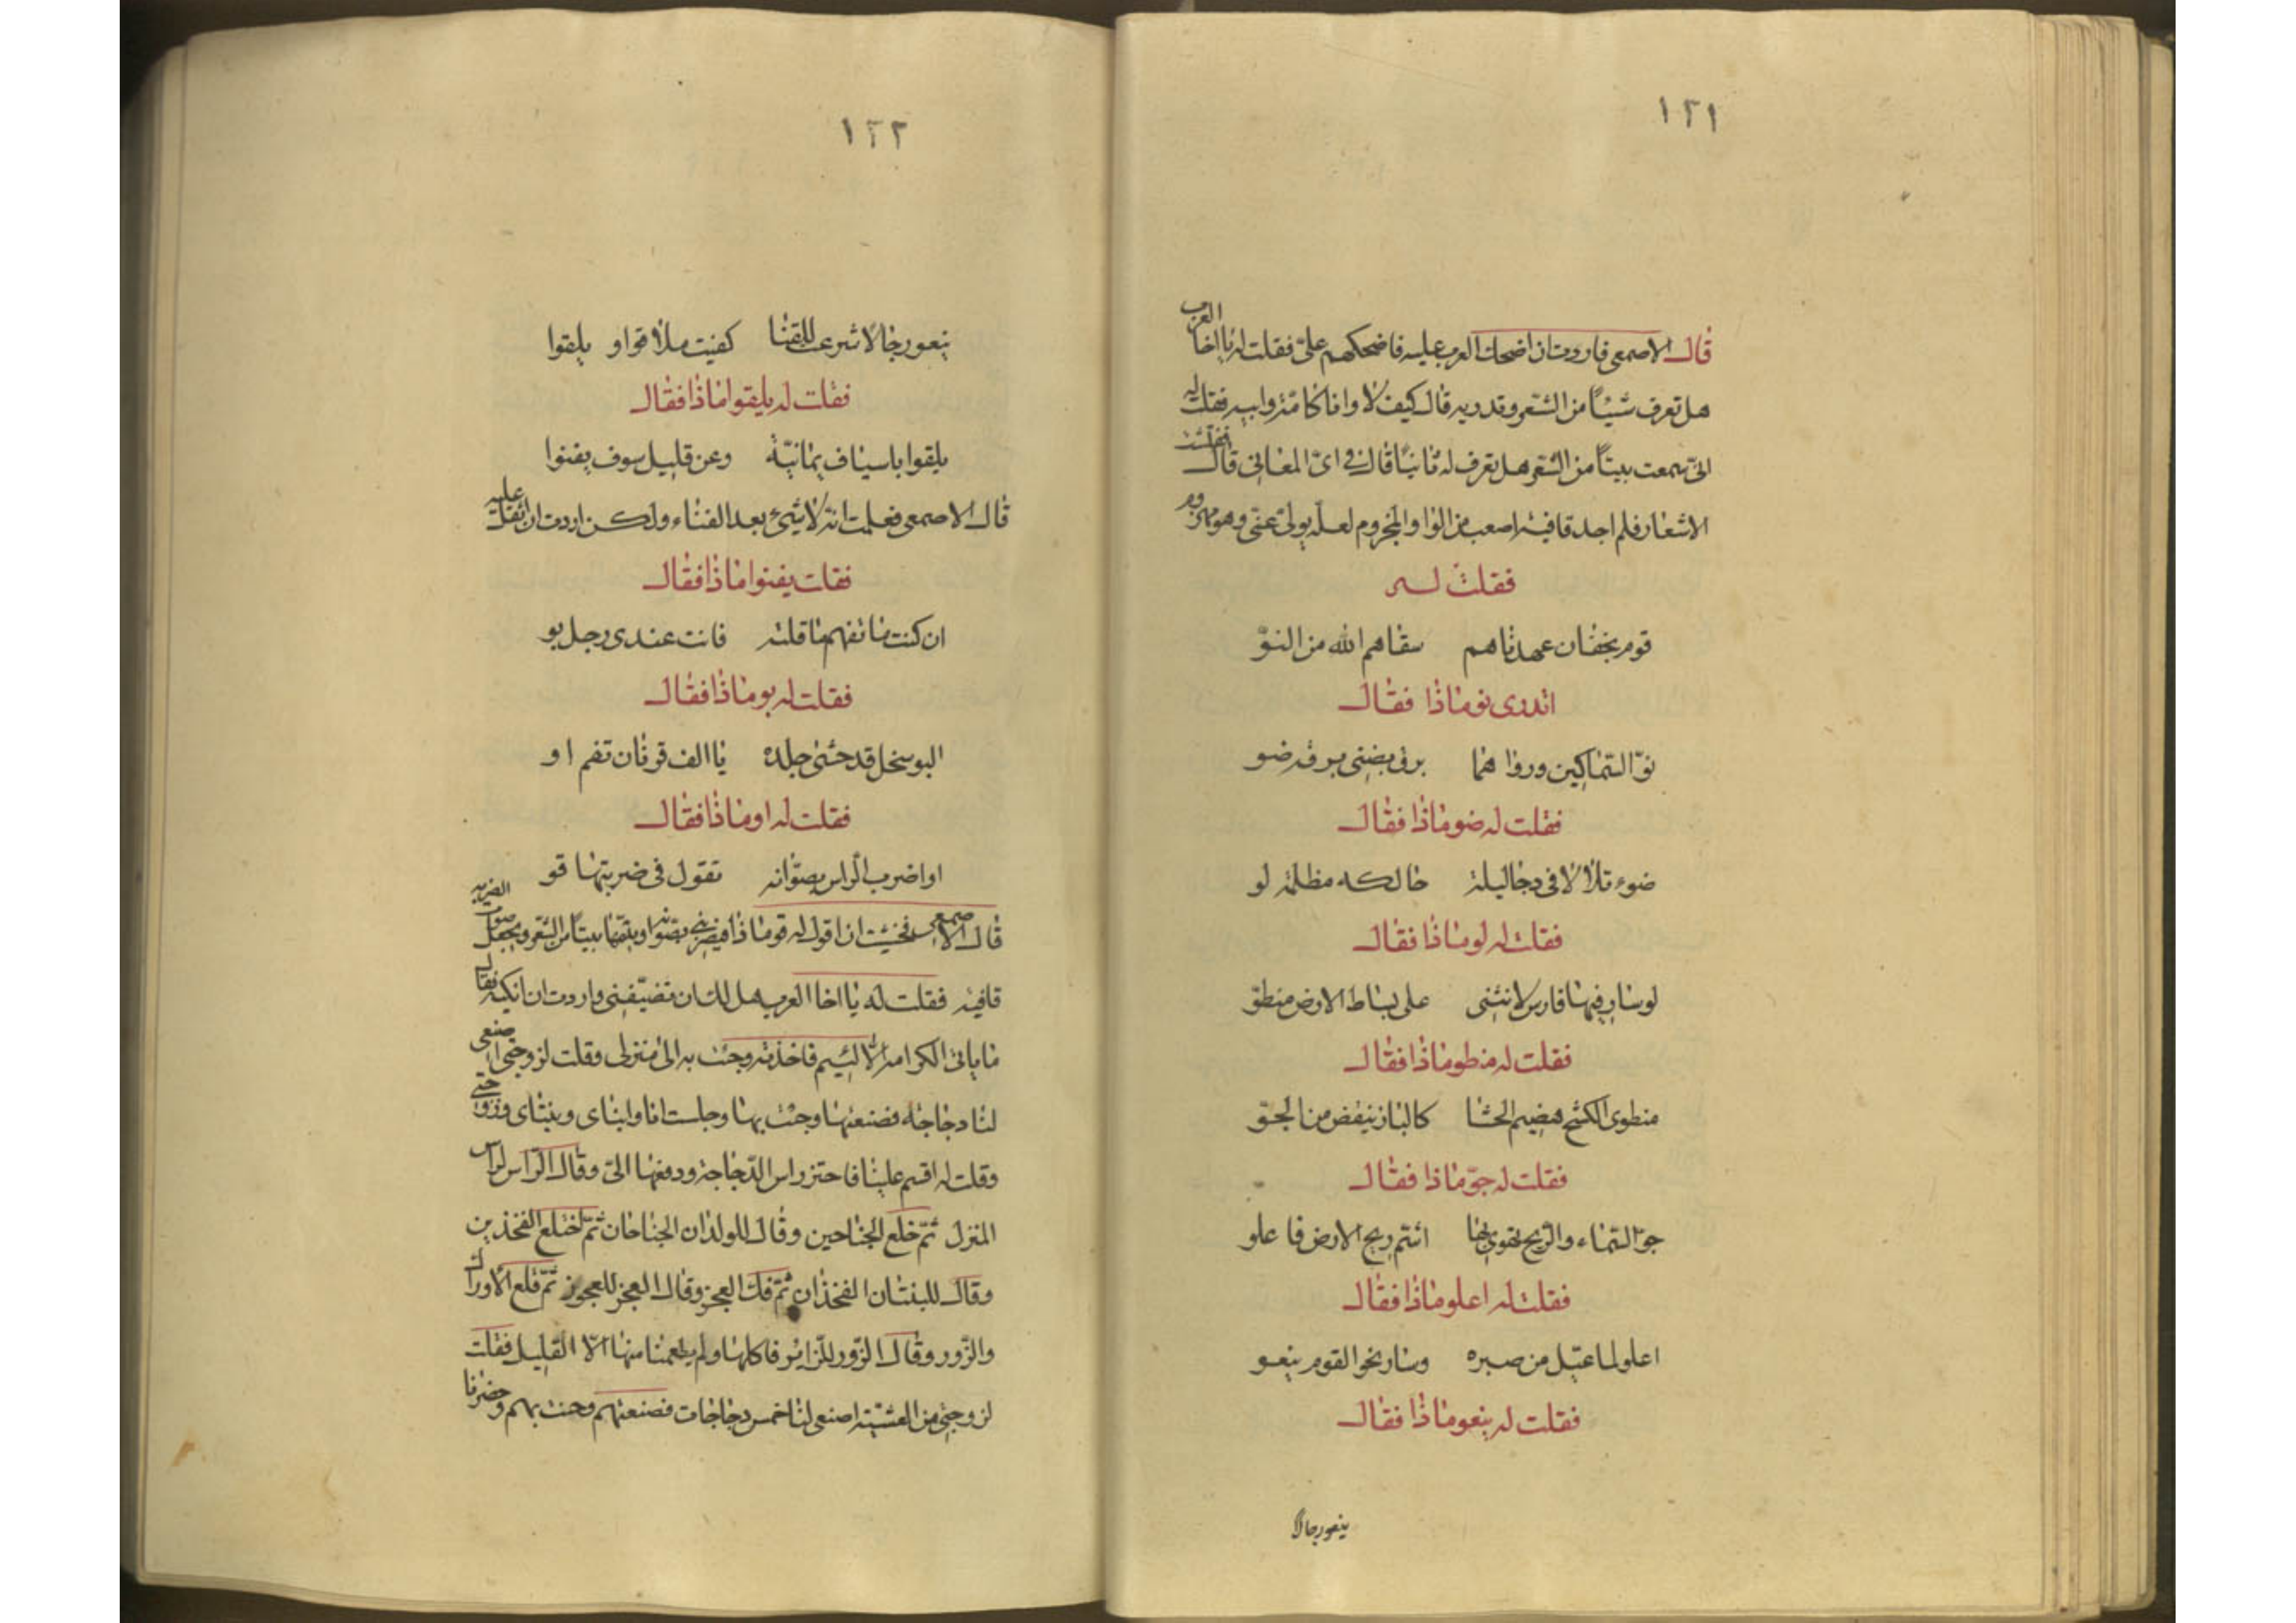 ١٢١
قال الاصمعي فاردت ان اضحك العرب عليه فاضحكهم علي فقلت له يا اخا العرب
هل تعرف شيئا من الشعر وتدريه قال كيف لا وانا كامه وابيه فقلت له
اني سمعت بيتا من الشعر هل تعرف له ثانيا قال في اي المعاني قال ففتشت
الاشعار فلم اجد قافية اصعب من الواو المجزوم لعله يولي عني وهو مخزوم
فقلت له
قوم بخفان عهدناهم سقاهم الله من النو
اتدري نو ماذا فقال
نو السماكين ورواهما برق يضئ برقه ضو
فقلت له ضو ماذا فقال
ضوء تلألأ في دجا ليلة حالكه مظلمة لو
فقلت له لو ماذا فقال
لو سار فيها فارس لانثنى على بساط الارض منطو
فقلت له منطو ماذا فقال
منطوي الكشح هضيم الحشا كالباز ينفض من الجو
فقلت له جو ماذا فقال
جو السماء والريح تهوي بها اشتم ريح الارض فاعلو
فقلت له اعلو ماذا فقال
اعلو لما عيل من صبره وسار نحو القوم ينعو
فقلت له ينعو ماذا فقال
ينعو رجالا
١٢٢
ينعو رجالا شرعت للقنا كفيت ملاقوا و يلقوا
فقلت له يلقوا ماذا فقال
يلقوا باسياف يمانية وعن قليل سوف يفنوا
قال الاصمعي فعلمت انه لا شئ بعد الفناء ولكن اردت ان اثقل عليه
فقلت يفنوا ماذا فقال
ان كنت ما تفهم ما قلته فانت عندي رجل بو
فقلت له بو ماذا فقال
البو سخل قد حشى جلده يا الف قرنان تقم او
فقلت له او ماذا فقال
او اضرب الراس بصوانه تقول في ضربتها قو
قال الاصمعي فخشيت ان اقول له قو ماذا فيضربني بصوانه ويتمها بيتا من الشعر ويجعل صوت الضربه
قافيه فقلت له يا اخا العرب هل لك ان تضيفني واردت ان انكيه فقال
ما يابى الكرامة الا لئيم فاخذته وجئت به الى منزلي وقلت لزوجتي اصنعي
لنا دجاجة فصنعتها وجئت بها وجلست انا وابناي وبنتاي وزوجتي
وقلت له اقسم علينا فاحتز راس الدجاجة ودفعها الي وقال الراس لراس
المنزل ثم خلع الجناحين وقال للولدان الجناحان ثم اختلع الفخذين
وقال للبنتان الفخذان ثم فك العجز وقال العجز للعجوز ثم قلع الاوراك
والزور وقال الزور للزائر فاكلها ولم يطعمنا منها الا القليل فقلت
لزوجتي من العشية اصنعي لنا خمس دجاجات فصنعتهم وجئت بهم وحضرنا